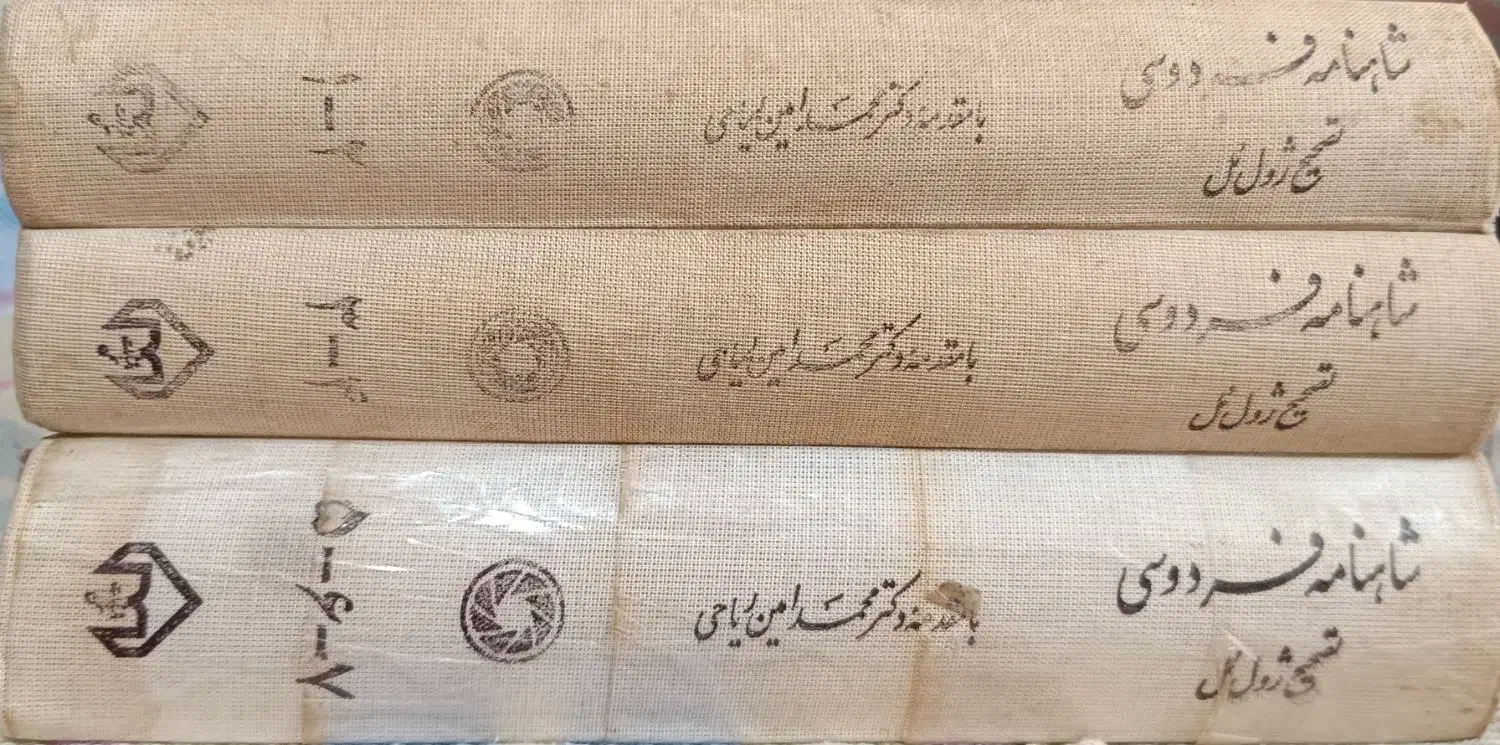 شاهنامه فردوسی
تصحیح ژول مل
با مقدمه دکتر محمد امین ریاحی
۱-۲
شاهنامه فردوسی
تصحیح ژول مل
با مقدمه دکتر محمد امین ریاحی
۳-۴
شاهنامه فردوسی
تصحیح ژول مل
با مقدمه دکتر محمد امین ریاحی
۵-۶-۷